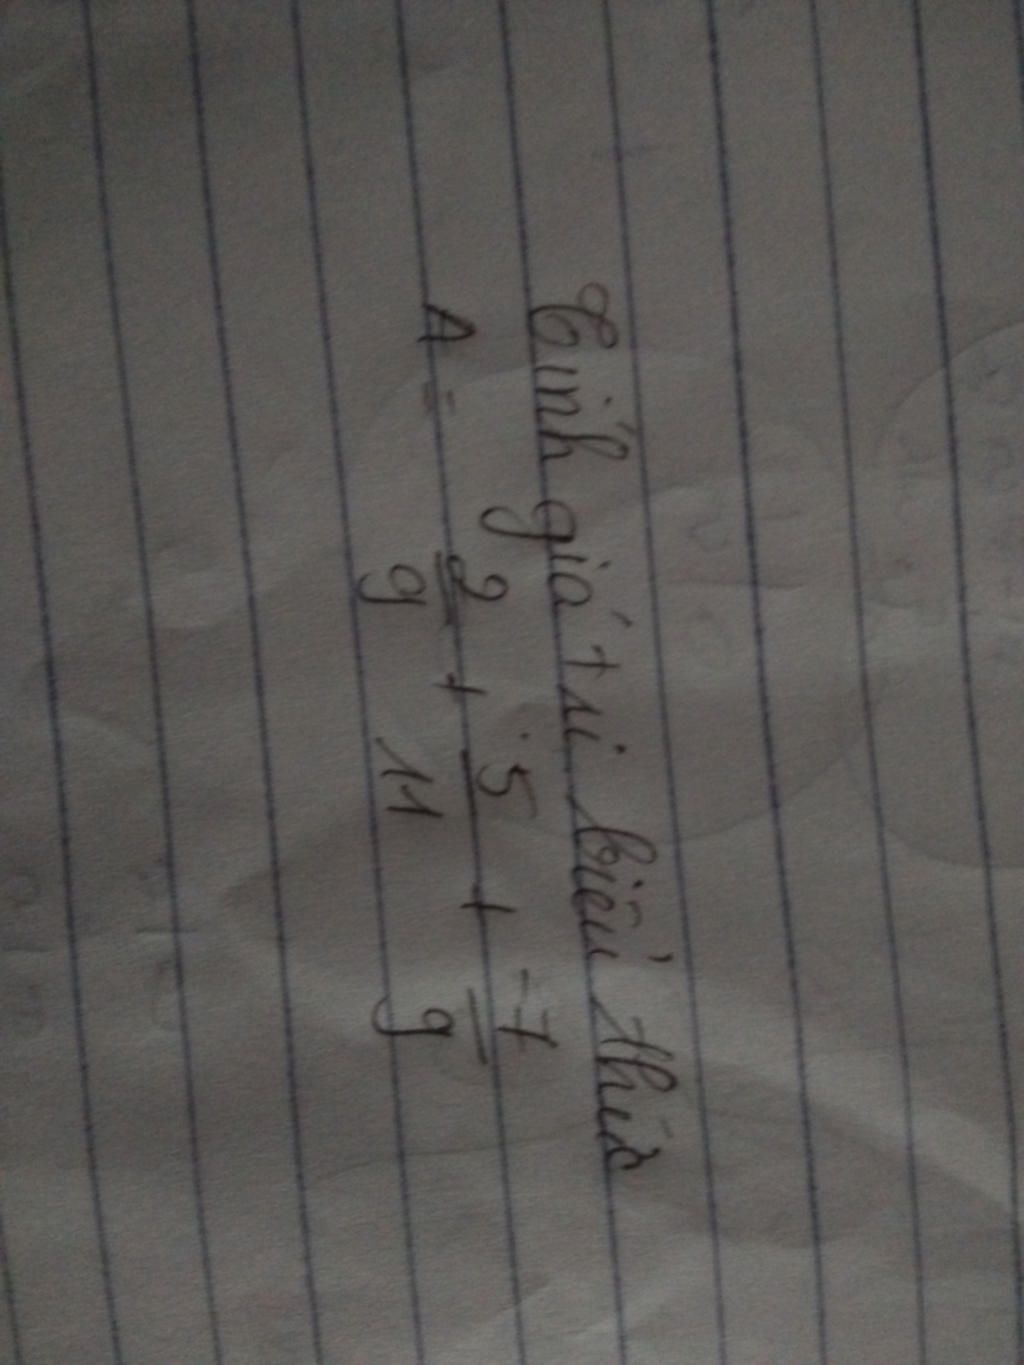 Tính giá trị biểu thức
A = 2/9 + 5/11 + -7/9